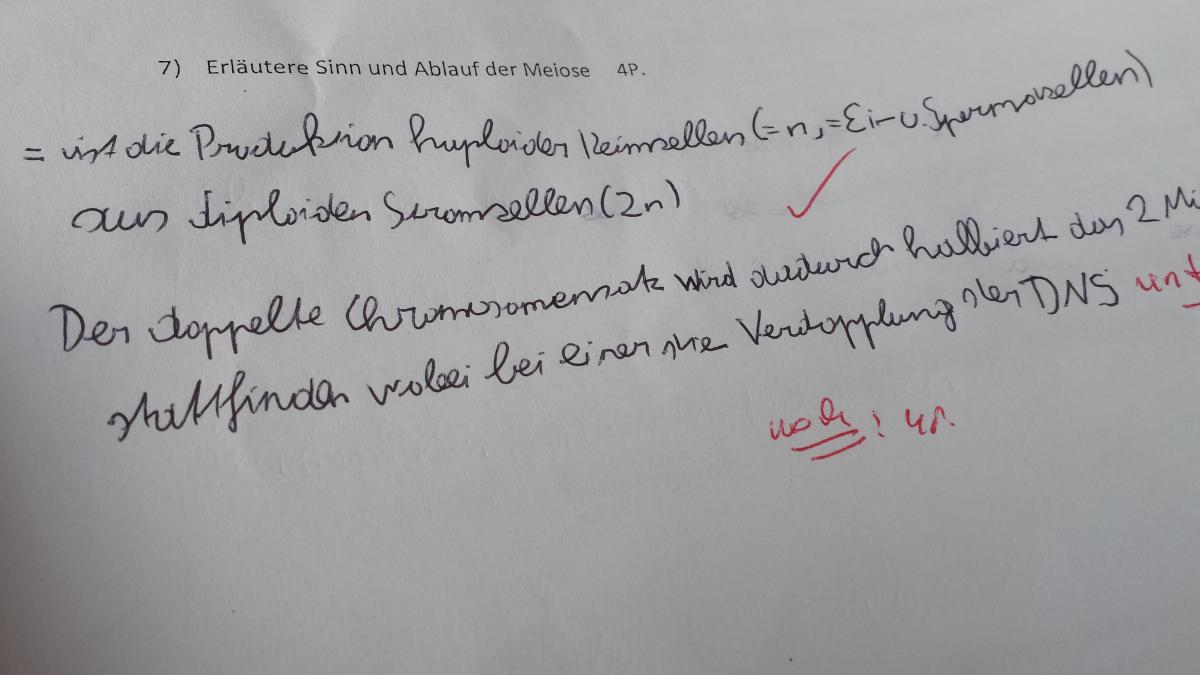 7) Erläutere Sinn und Ablauf der Meiose 4P.
= ist die Produktion haploider Keimzellen (= n, = Ei- u. Spermazellen)
aus diploiden Stromzellen (2n)
Der doppelte Chromosomensatz wird dadurch halbiert das 2 Mi
stattfinden wobei bei einer die Verdopplung der DNS unt
noch : 4P.